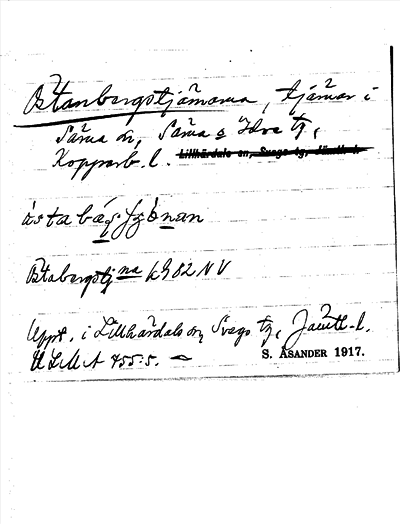 Östanbergstjärnarna, tjärnar i
Särna sn, Särna o Idre tg,
Kopparb. l. Lillhärdals sn, Svegs tg, Jämtl. l.
Östabergstjna kg 82 NV
Uppt. i Lillhärdals sn, Svegs tg, Jämtl. l.
ULMA 455:5. —
S. ÅSANDER 1917.